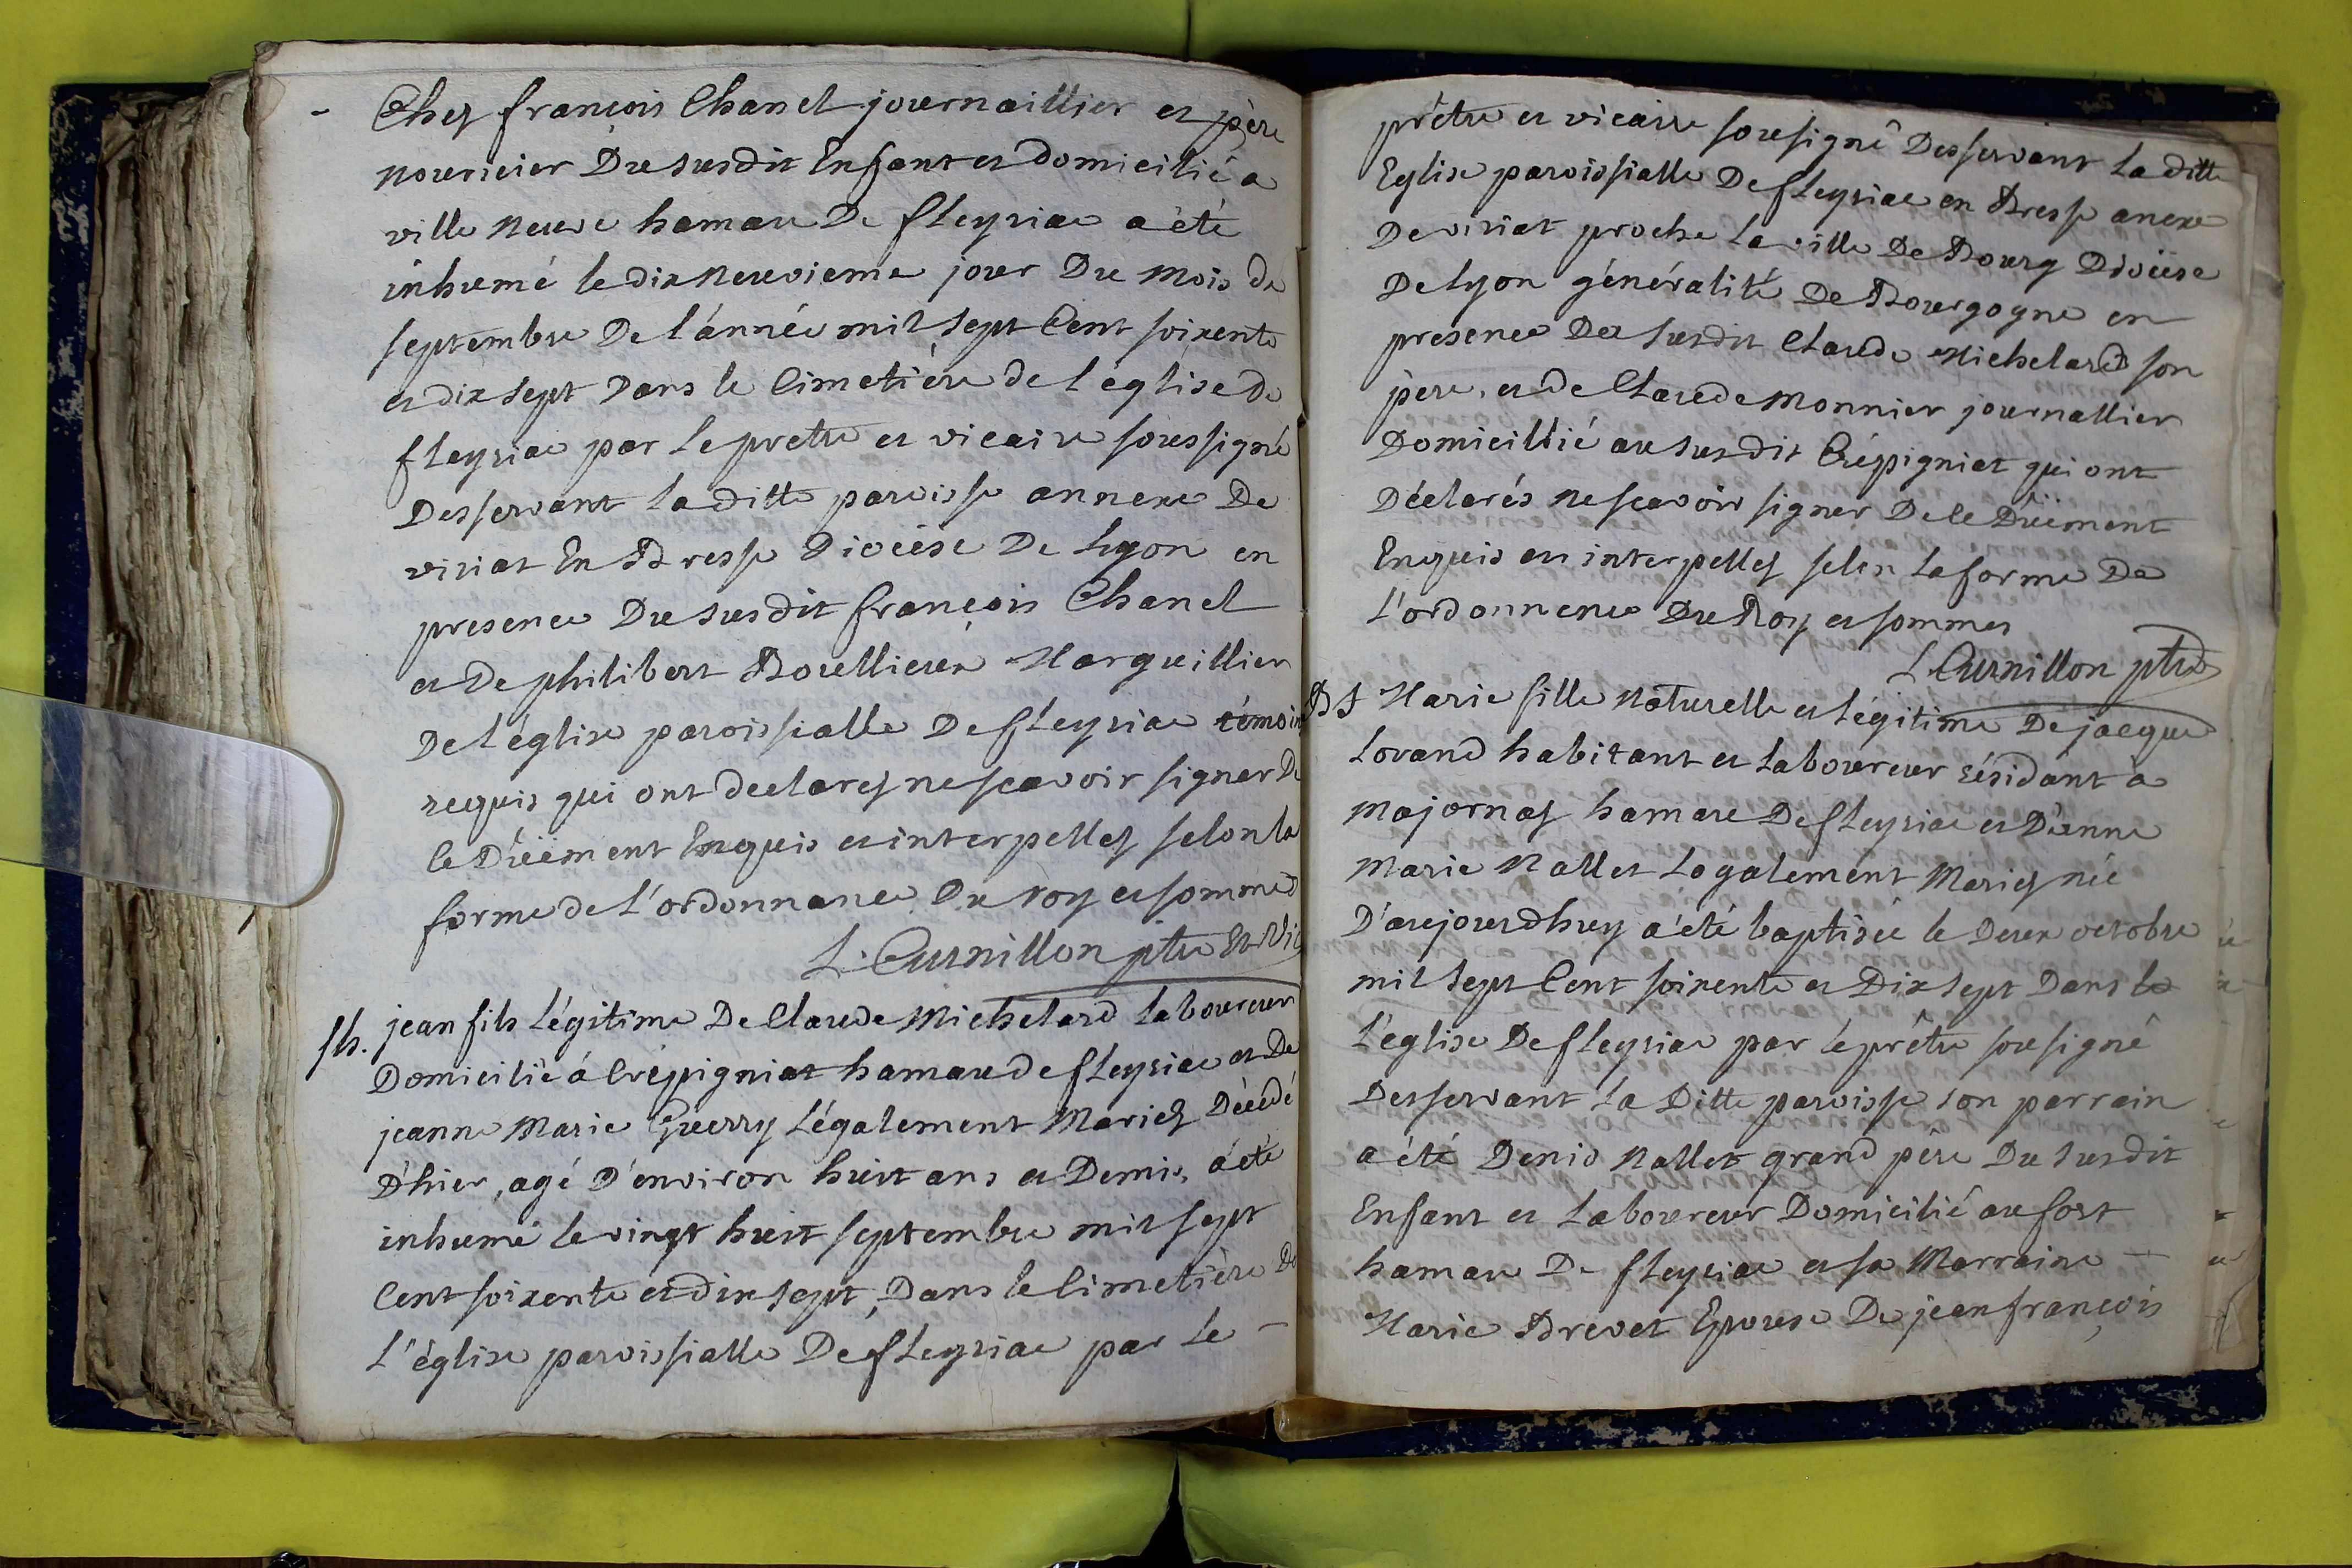 Chez françois Chanel journaillier et père
nouricier Du susdit Enfant et domicilié a
ville neuve hamau De fleyriac a été
inhumé le dix neuvieme jour Du mois de
septembre De l'année mil sept Cent soixente
et dix sept Dans le Cimetière de l'église de
fleyriac par le pretre et vicaire soussigné
Desservant la ditte paroisse annexe De
viriat En Bresse Diocèse De Lyon en
presence Du susdit françois Chanel
et De philibert Marguillier
De l'église paroissialle De fleyriac témoin
requis qui ont declarez ne scavoir signer De
ce Düement Enquis et interpellez selon la
forme de l'ordonnance Du roy et sommes
L. Curnillon ptre et vic
sh. jean fils légitime De Claude Michelard laboureur
Domicilié à Crépigniat hamau de fleyriac et De
jeanne Marie Guerry légalement Mariez Décédé
D'hier, agé D'environ huit ans et Demis, a été
inhumé le vingt huit septembre mil sept
Cent soixente et dix sept, Dans le Cimetière De
L'église paroissialle De fleyriac par le —
prêtre et vicaire sousigné Desservant la ditte
Eglise paroissialle De fleyriac en Bresse anexe
De viriat proche la ville De Bourg Diocèse
De Lyon généralité De Bourgogne en
presence Du susdit Claude Michelard son
père, et de Claude Monnier journallier
Domicillié au susdit Crépigniat qui ont
Déclarés ne scavoir signer De ce Düement
Enquis et interpellez selon la forme De
L'ordonnence Du Roy et sommes
L Curnillon ptre
Marie fille naturelle et légitime De jacque
Lorand habitant et laboureur résidant a
Majornaz hamau De fleyriac et D'anne
Marie Nallet Légalement Mariez née
D'aujourdhuy a été baptisée le Deux octobre
mil sept Cent soixente et Dix sept Dans la
L'église De fleyriac par le prêtre sousigné
Desservant La Ditte paroisse son parrain
a été Denis Nallet grand père Du susdit
Enfant et Laboureur Domicilié au fort
hamau De fleyriac et sa Marraine —
Marie Brevet Epouse De jean françois